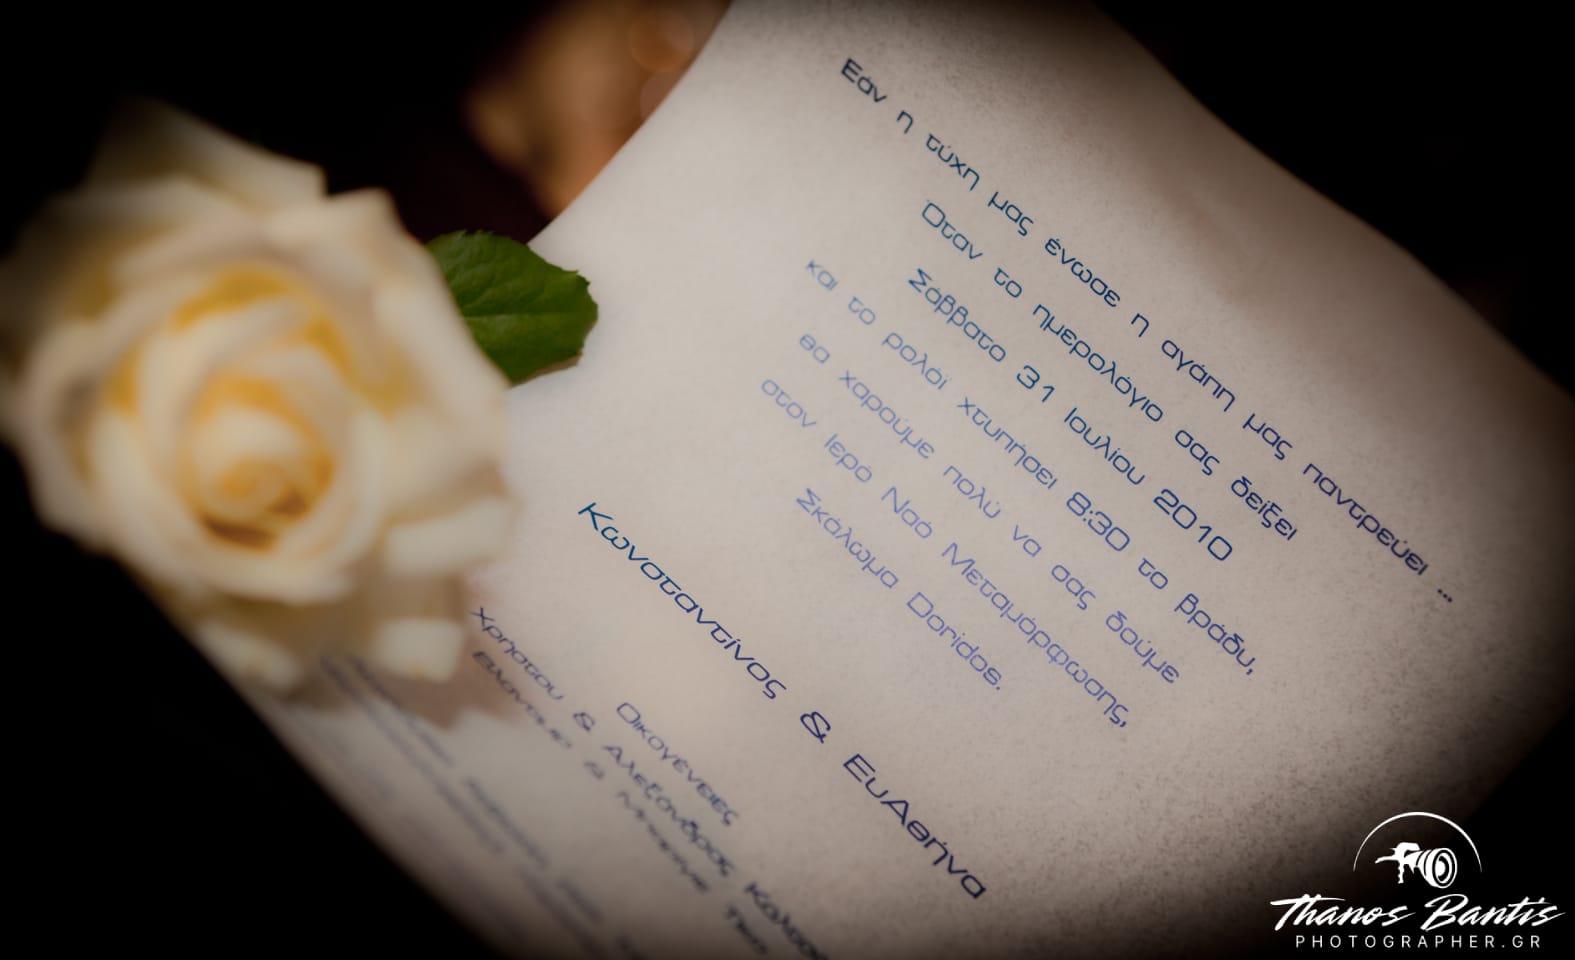 Εάν η τύχη μας ένωσε η αγάπη μας παντρεύει ...
Όταν το ημερολόγιο σας δείξει
Σάββατο 31 Ιουλίου 2010
και το ρολόι χτυπήσει 8:30 το βράδυ,
θα χαρούμε πολύ να σας δούμε
στον Ιερό Ναό Μεταμόρφωσης,
Σκάλωμα Doridos.
Κωνσταντίνος & ΕυΑθήνα
Οικογένειες
Χρήστου & Αλεξάνδρας
Thanos Bantis
PHOTOGRAPHER.GR